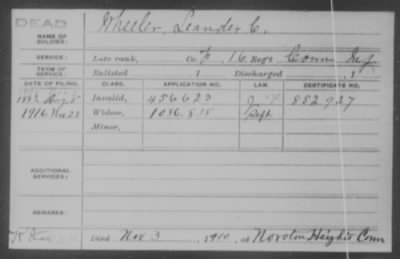 DEAD
NAME OF SOLDIER: Wheeler, Leander C.
SERVICE: Late rank, Co. 16 Reg't Conn Inf
TERM OF SERVICE: Enlisted , 1 Discharged , 1
DATE OF FILING. CLASS. APPLICATION NO. LAW. CERTIFICATE NO.
1882 Aug 5 Invalid, 456623 882927
1916 Nov 23 Widow, 1086
Minor,
ADDITIONAL SERVICES:
REMARKS:
Died Nov 3, 1910, at Noroton Heights Conn